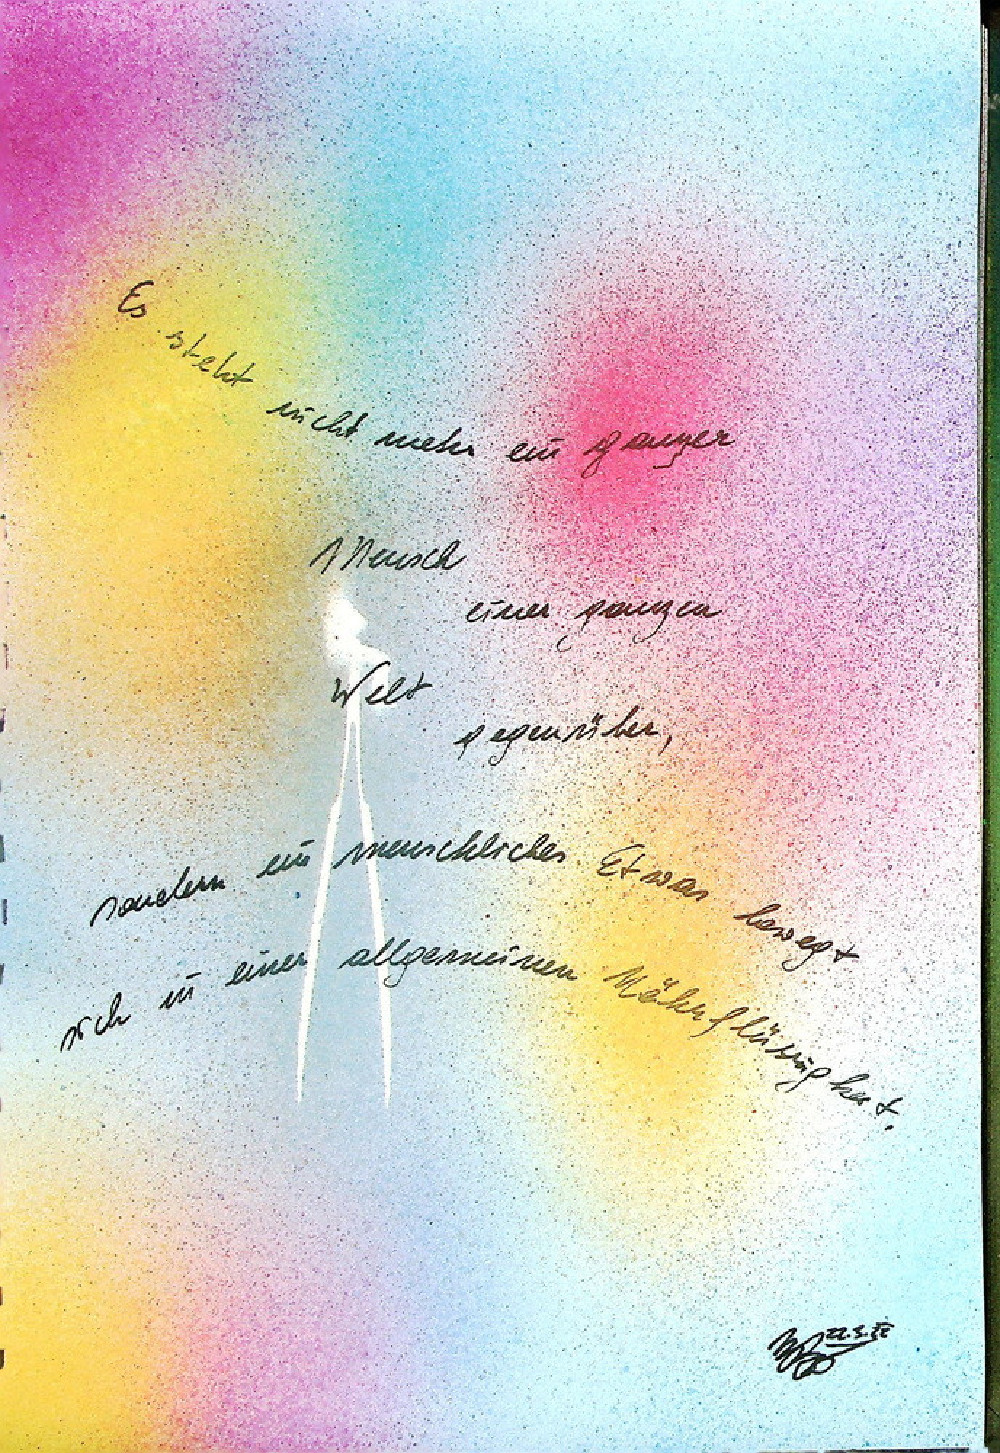 Es steht nicht mehr ein ganzer
Mensch
einer ganzen
Welt
gegenüber,
sondern ein menschliches Etwas bewegt
sich in einer allgemeinen Nährflüssigkeit.